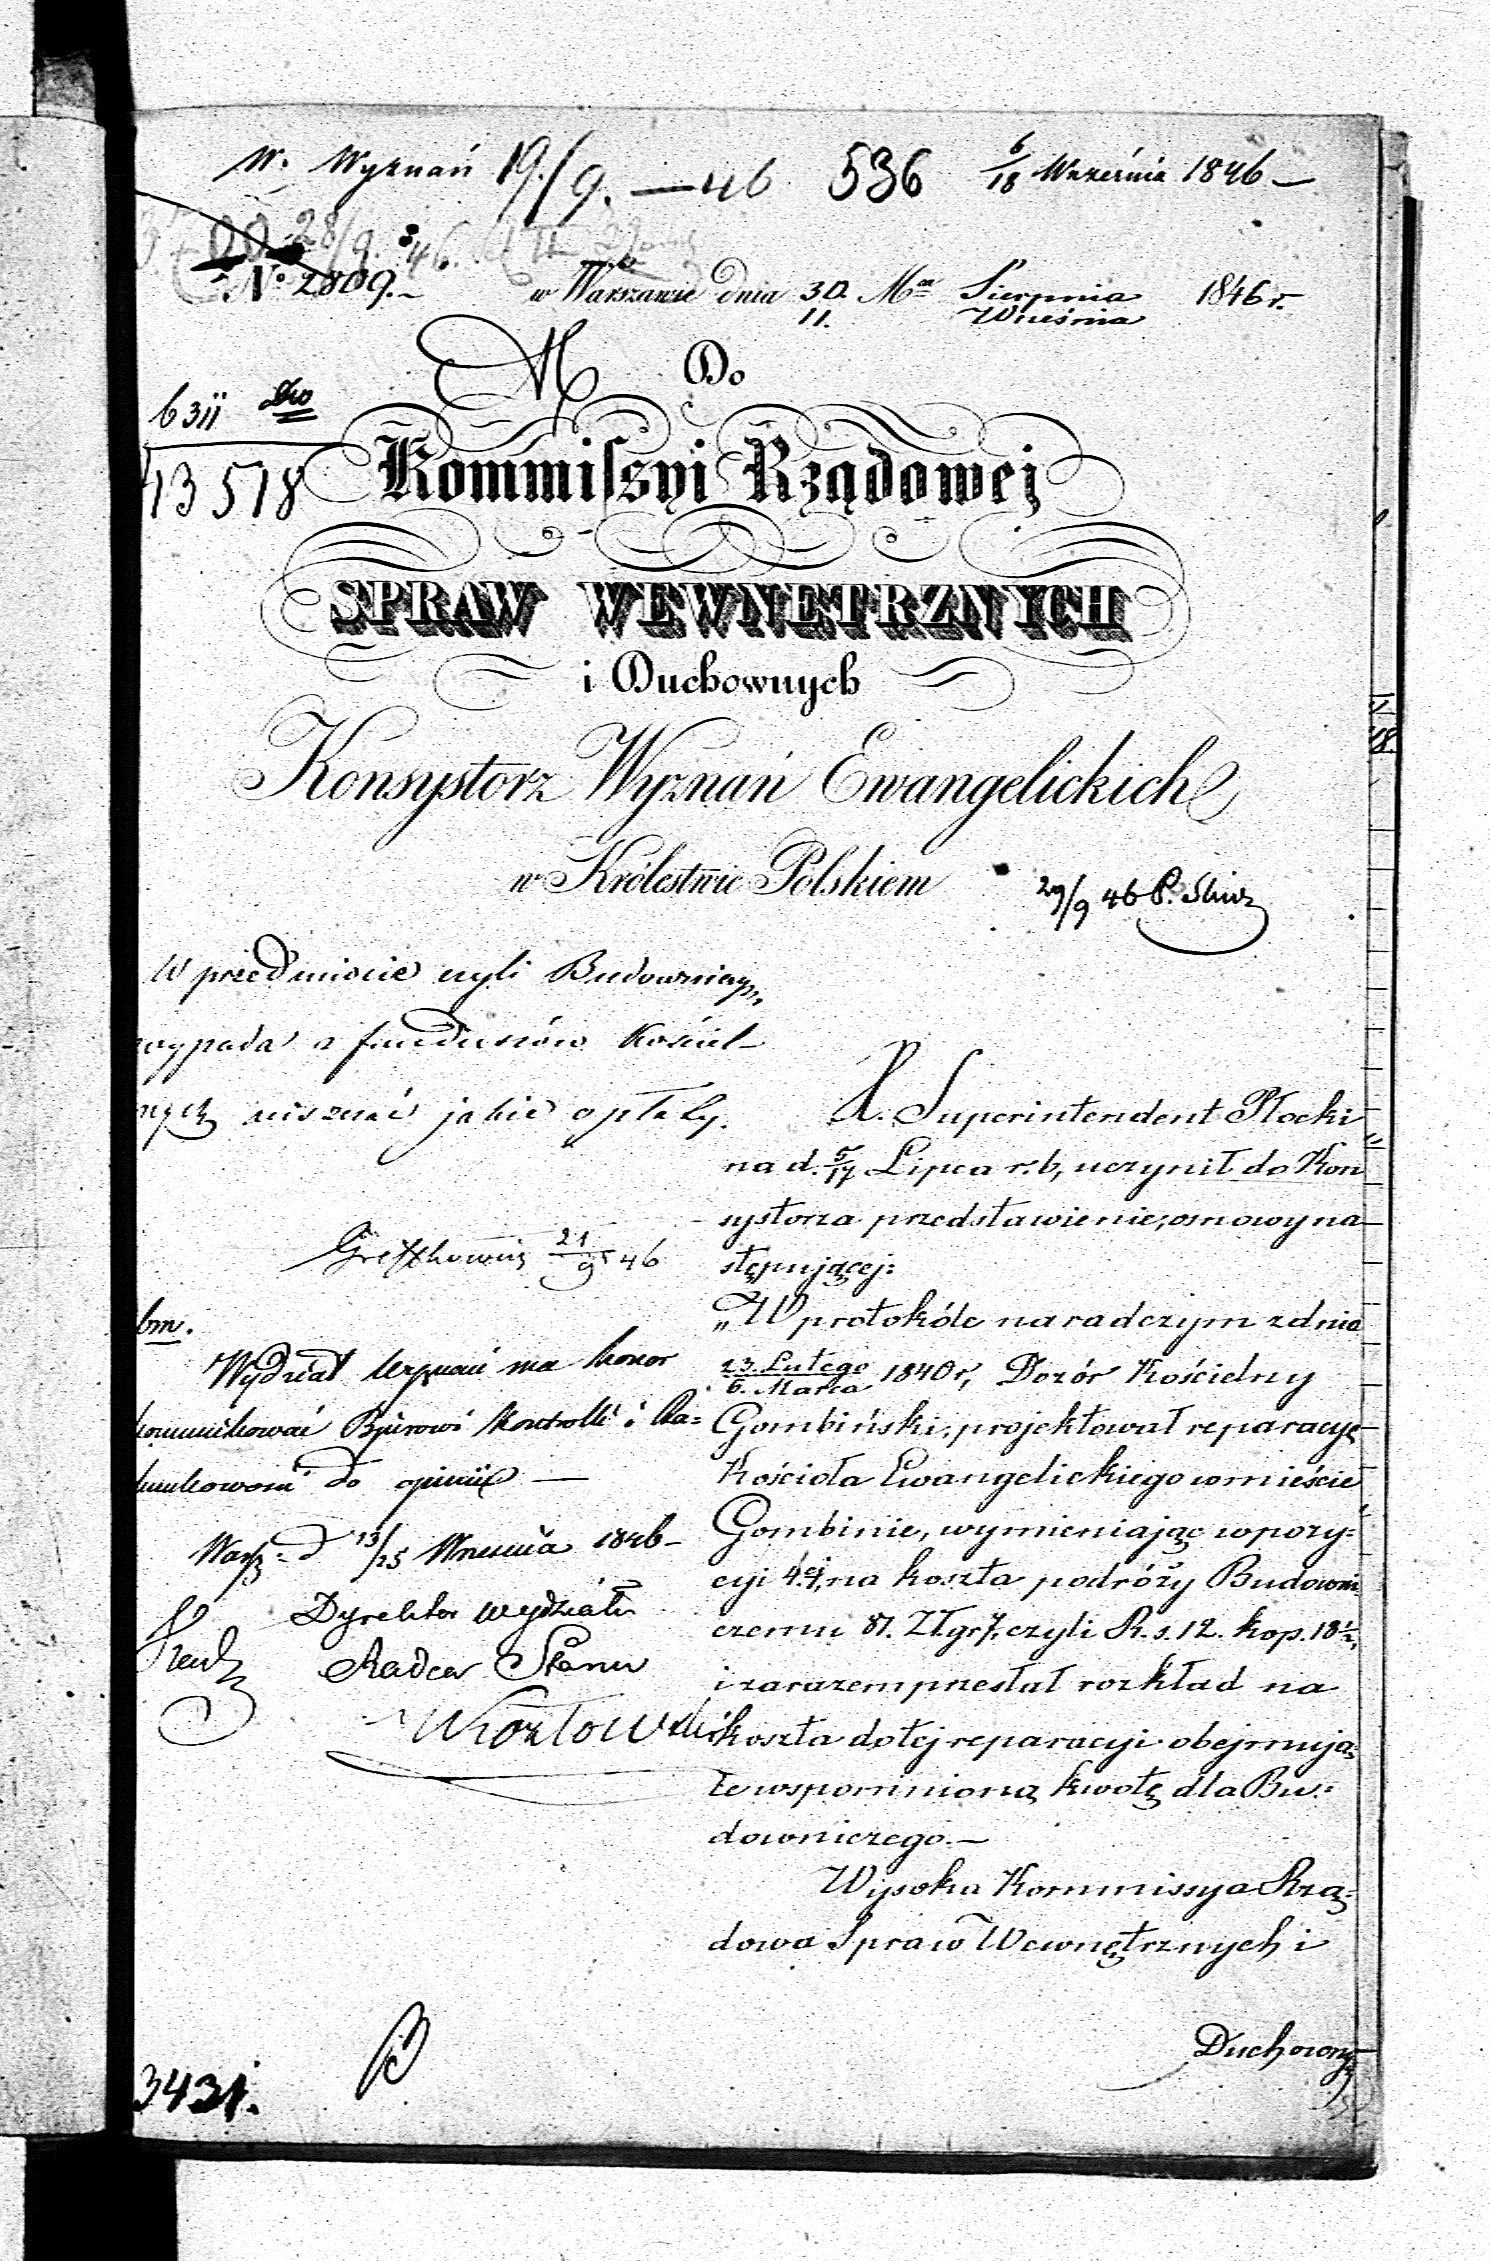 W. Wyznań 19/9. — 46 536 6/18 Września 1846 —
28/9. 46.
No 2809. —
w Warszawie dnia 30/11. Mca Sierpnia/Września 1846 r.
Do
6311
13518
Kommissyi Rządowej
SPRAW WEWNĘTRZNYCH
i Duchownych
Konsystorz Wyznań Ewangelickich
w Królestwie Polskiem
29/9 46 P.
W przedmiocie czyli Budowniczym
wypada z funduszów Kościel-
nych uiszczać jakie opłaty.
21/9 46
bm.
Wydział Wyznań ma honor
kommunikować Bjórowi Kontrolli i Ra=
chunkowości do opinii —
Warsz: d 13/25 Września 1846 —
Dyrektor Wydziału
Radca Stanu
X. Superintendent Płocki
na d. 5/17 Lipca r. b, uczynił do Kon
systorza przedstawienie, osnowy na-
stępującej:
„W protokóle naradczym z dnia
23. Lutego/6. Marca 1840 r, Dozór Kościelny
Gombiński, projektował reparacyę
Kościoła Ewangelickiego w mieście
Gombinie, wymieniając w pozy-
cyi 4ej, na koszta podróży Budowni
czemu 81. Zł gr 7, czyli R. s. 12. kop. 18 1/2,
i zarazem przesłał rozkład na
koszta do tej reparacyi obejmują=
ce wspomnioną kwotę dla Bu=
downiczego. —
Wysoka Kommissya Rzą=
dowa Spraw Wewnętrznych i
Duchowny
3431.